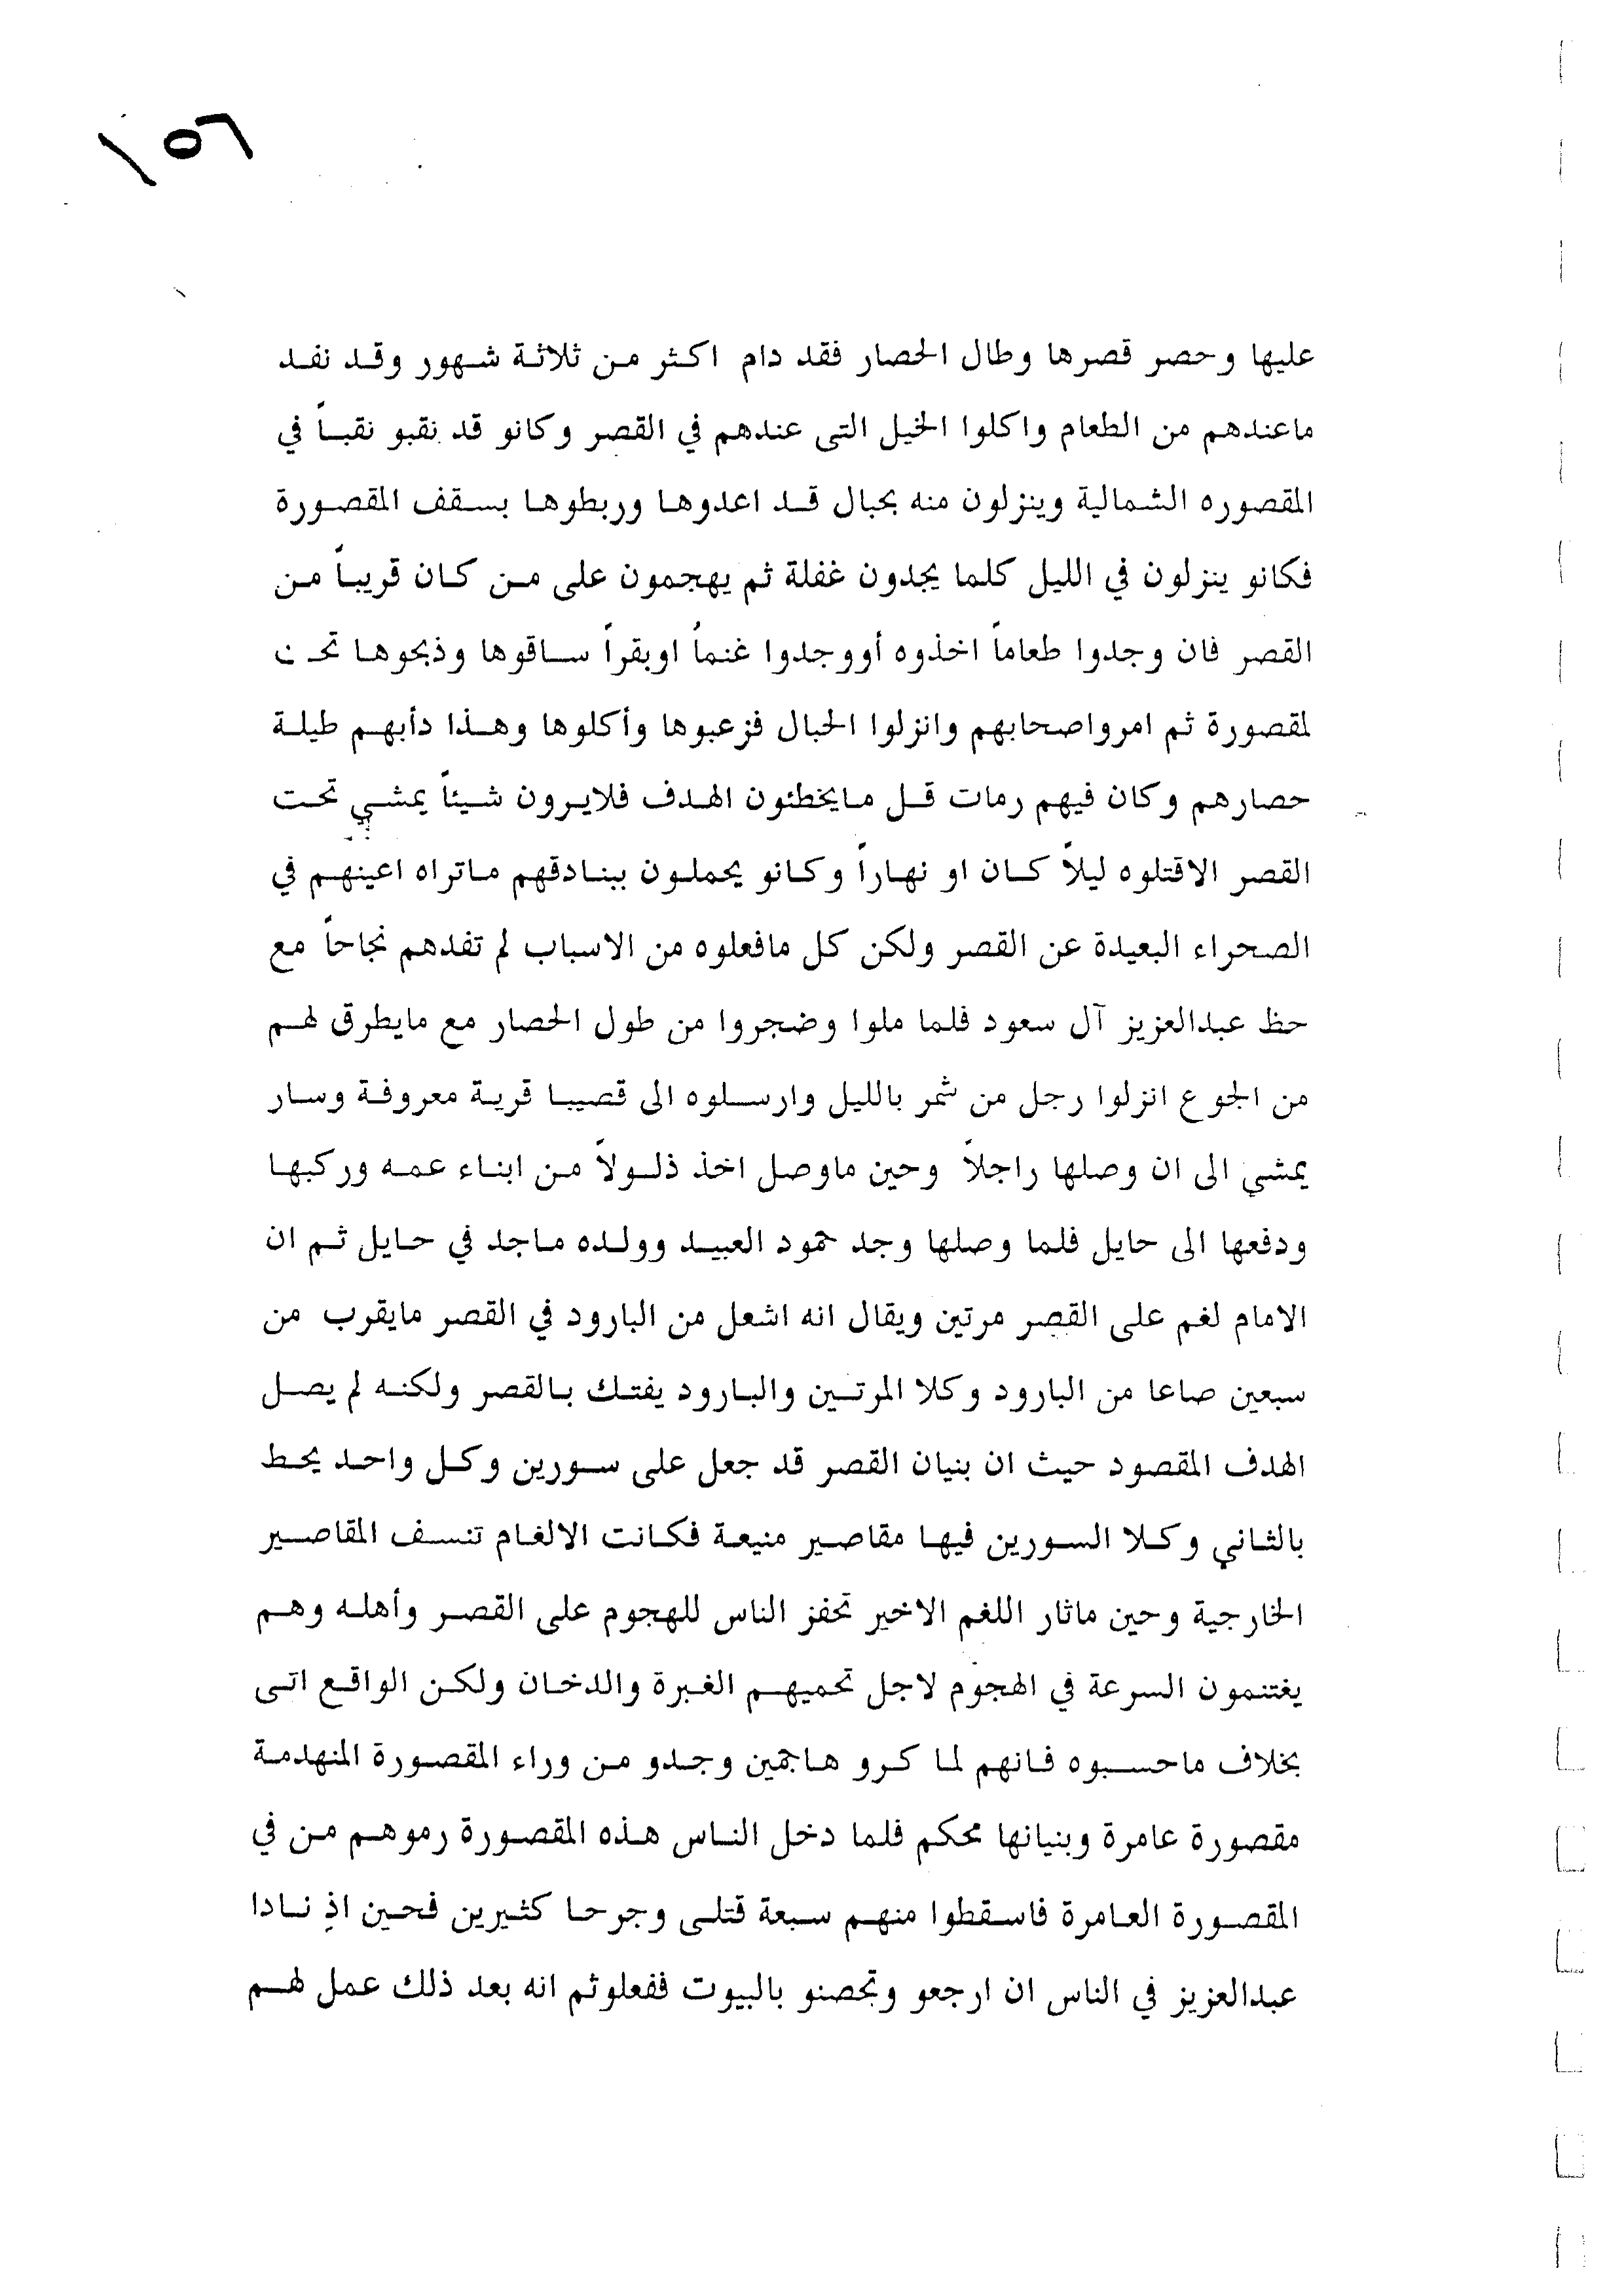 ١٥٦
عليها وحصر قصرها وطال الحصار فقد دام اكثر من ثلاثة شهور وقد نفد
ماعندهم من الطعام واكلوا الخيل التى عندهم في القصر وكانو قد نقبو نقباً في
المقصوره الشمالية وينزلون منه بحبال قد اعدوها وربطوها بسقف المقصورة
فكانو ينزلون في الليل كلما يجدون غفلة ثم يهجمون على من كان قريباً من
القصر فان وجدوا طعاماً اخذوه أووجدوا غنماً اوبقراً ساقوها وذبحوها تحت
لمقصورة ثم امرواصحابهم وانزلوا الحبال فزعبوها وأكلوها وهذا دأبهم طيلة
حصارهم وكان فيهم رمات قل مايخطئون الهدف فلايرون شيئاً يمشي تحت
القصر الاقتلوه ليلاً كان او نهاراً وكانو يحملون ببنادقهم ماتراه اعينهم في
الصحراء البعيدة عن القصر ولكن كل مافعلوه من الاسباب لم تفدهم نجاحاً مع
حظ عبدالعزيز آل سعود فلما ملوا وضجروا من طول الحصار مع مايطرق لهم
من الجوع انزلوا رجل من شمر بالليل وارسلوه الى قصيبا قرية معروفة وسار
يمشي الى ان وصلها راجلاً وحين ماوصل اخذ ذلولاً من ابناء عمه وركبها
ودفعها الى حايل فلما وصلها وجد حمود العبيد وولده ماجد في حايل ثم ان
الامام لغم على القصر مرتين ويقال انه اشعل من البارود في القصر مايقرب من
سبعين صاعا من البارود وكلا المرتين والبارود يفتك بالقصر ولكنه لم يصل
الهدف المقصود حيث ان بنيان القصر قد جعل على سورين وكل واحد يحط
بالثاني وكلا السورين فيها مقاصير منيعة فكانت الالغام تنسف المقاصير
الخارجية وحين ماثار اللغم الاخير تحفز الناس للهجوم على القصر وأهله وهم
يغتنمون السرعة في الهجوم لاجل تحميهم الغبرة والدخان ولكن الواقع اتى
بخلاف ماحسبوه فانهم لما كرو هاجمين وجدو من وراء المقصورة المنهدمة
مقصورة عامرة وبنيانها محكم فلما دخل الناس هذه المقصورة رموهم من في
المقصورة العامرة فاسقطوا منهم سبعة قتلى وجرحا كثيرين فحين اذِ نادا
عبدالعزيز في الناس ان ارجعو وتحصنو بالبيوت ففعلوثم انه بعد ذلك عمل لهم